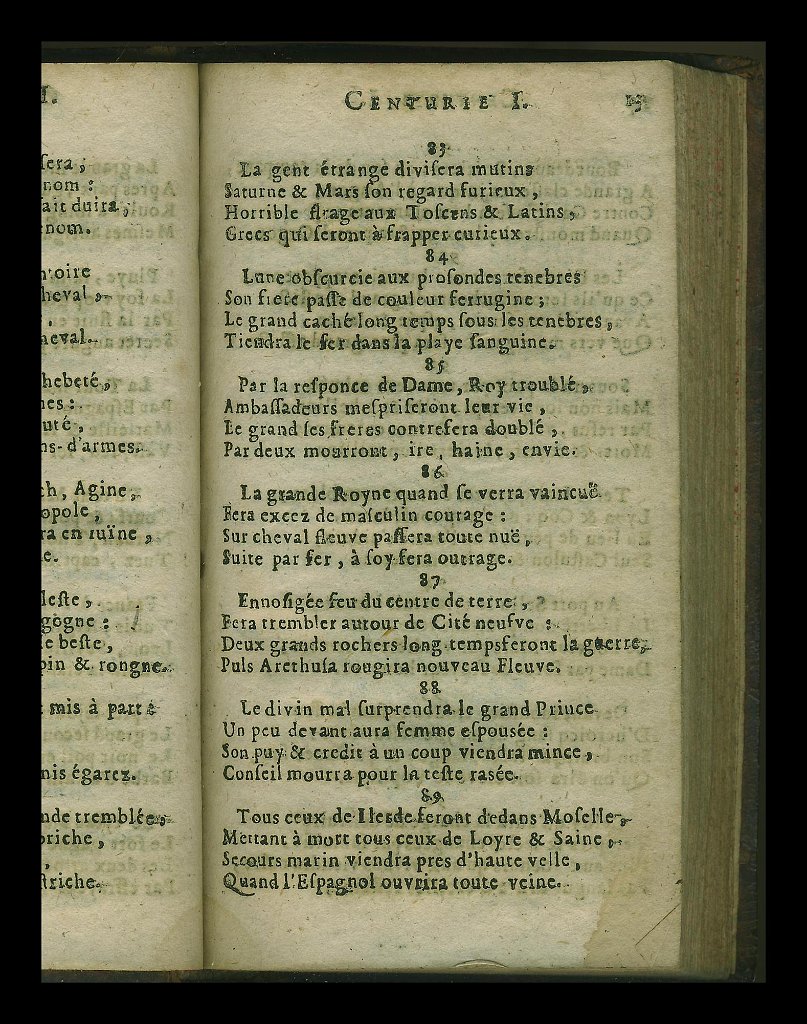 I.
ſera ;
nom :
ait duira,
enom.
toire
heval ,
,
heval.
hebeté,
nes :
uté ,
ns-d'armes.
ch, Agine,
opole ,
ra en ruïne ,
e.
leſte ,
gogne :
e beſte,
pin & rongne.
mis à part :
nis égarez.
nde tremblée,
briche ,
,
ſtriche.
CENTURIE I.
83
La gent étrange diviſera mutins
Saturne & Mars ſon regard furieux ,
Horrible ſtrage aux Toſcens & Latins ,
Grecs qui ſeront à frapper curieux.
84
Lune obſcurcie aux profondes tenebres
Son frere paſſe de couleur ferrugine ;
Le grand caché long temps ſous les tenebres ,
Tiendra le fer dans la playe ſanguine.
85
Par la reſponce de Dame, Roy troublé ,
Ambaſſadeurs meſpriſeront leur vie ,
Le grand ſes freres contrefera doublé ,
Par deux mourront , ire , haine , envie.
86
La grande Royne quand ſe verra vaincuë
Fera excez de maſculin courage :
Sur cheval fleuve paſſera toute nuë ,
Suite par fer , à foy fera outrage.
87
Ennoſigée feu du centre de terre ,
Fera trembler autour de Cité neufve :
Deux grands rochers long-tempsferont la guerre,
Puls Arethuſa rougira nouveau Fleuve.
88
Le divin mal ſurprendra le grand Prince
Un peu devant aura femme eſpouſée :
Son puy & credit à un coup viendra mince ,
Conſeil mourra pour la teſte rasée.
89
Tous ceux de Ilerde ſeront dedans Moſelle ,
Mettant à mort tous ceux de Loyre & Saine ,
Secours marin viendra pres d'haute velle ,
Quand l'Eſpagnol ouvrira toute veine.